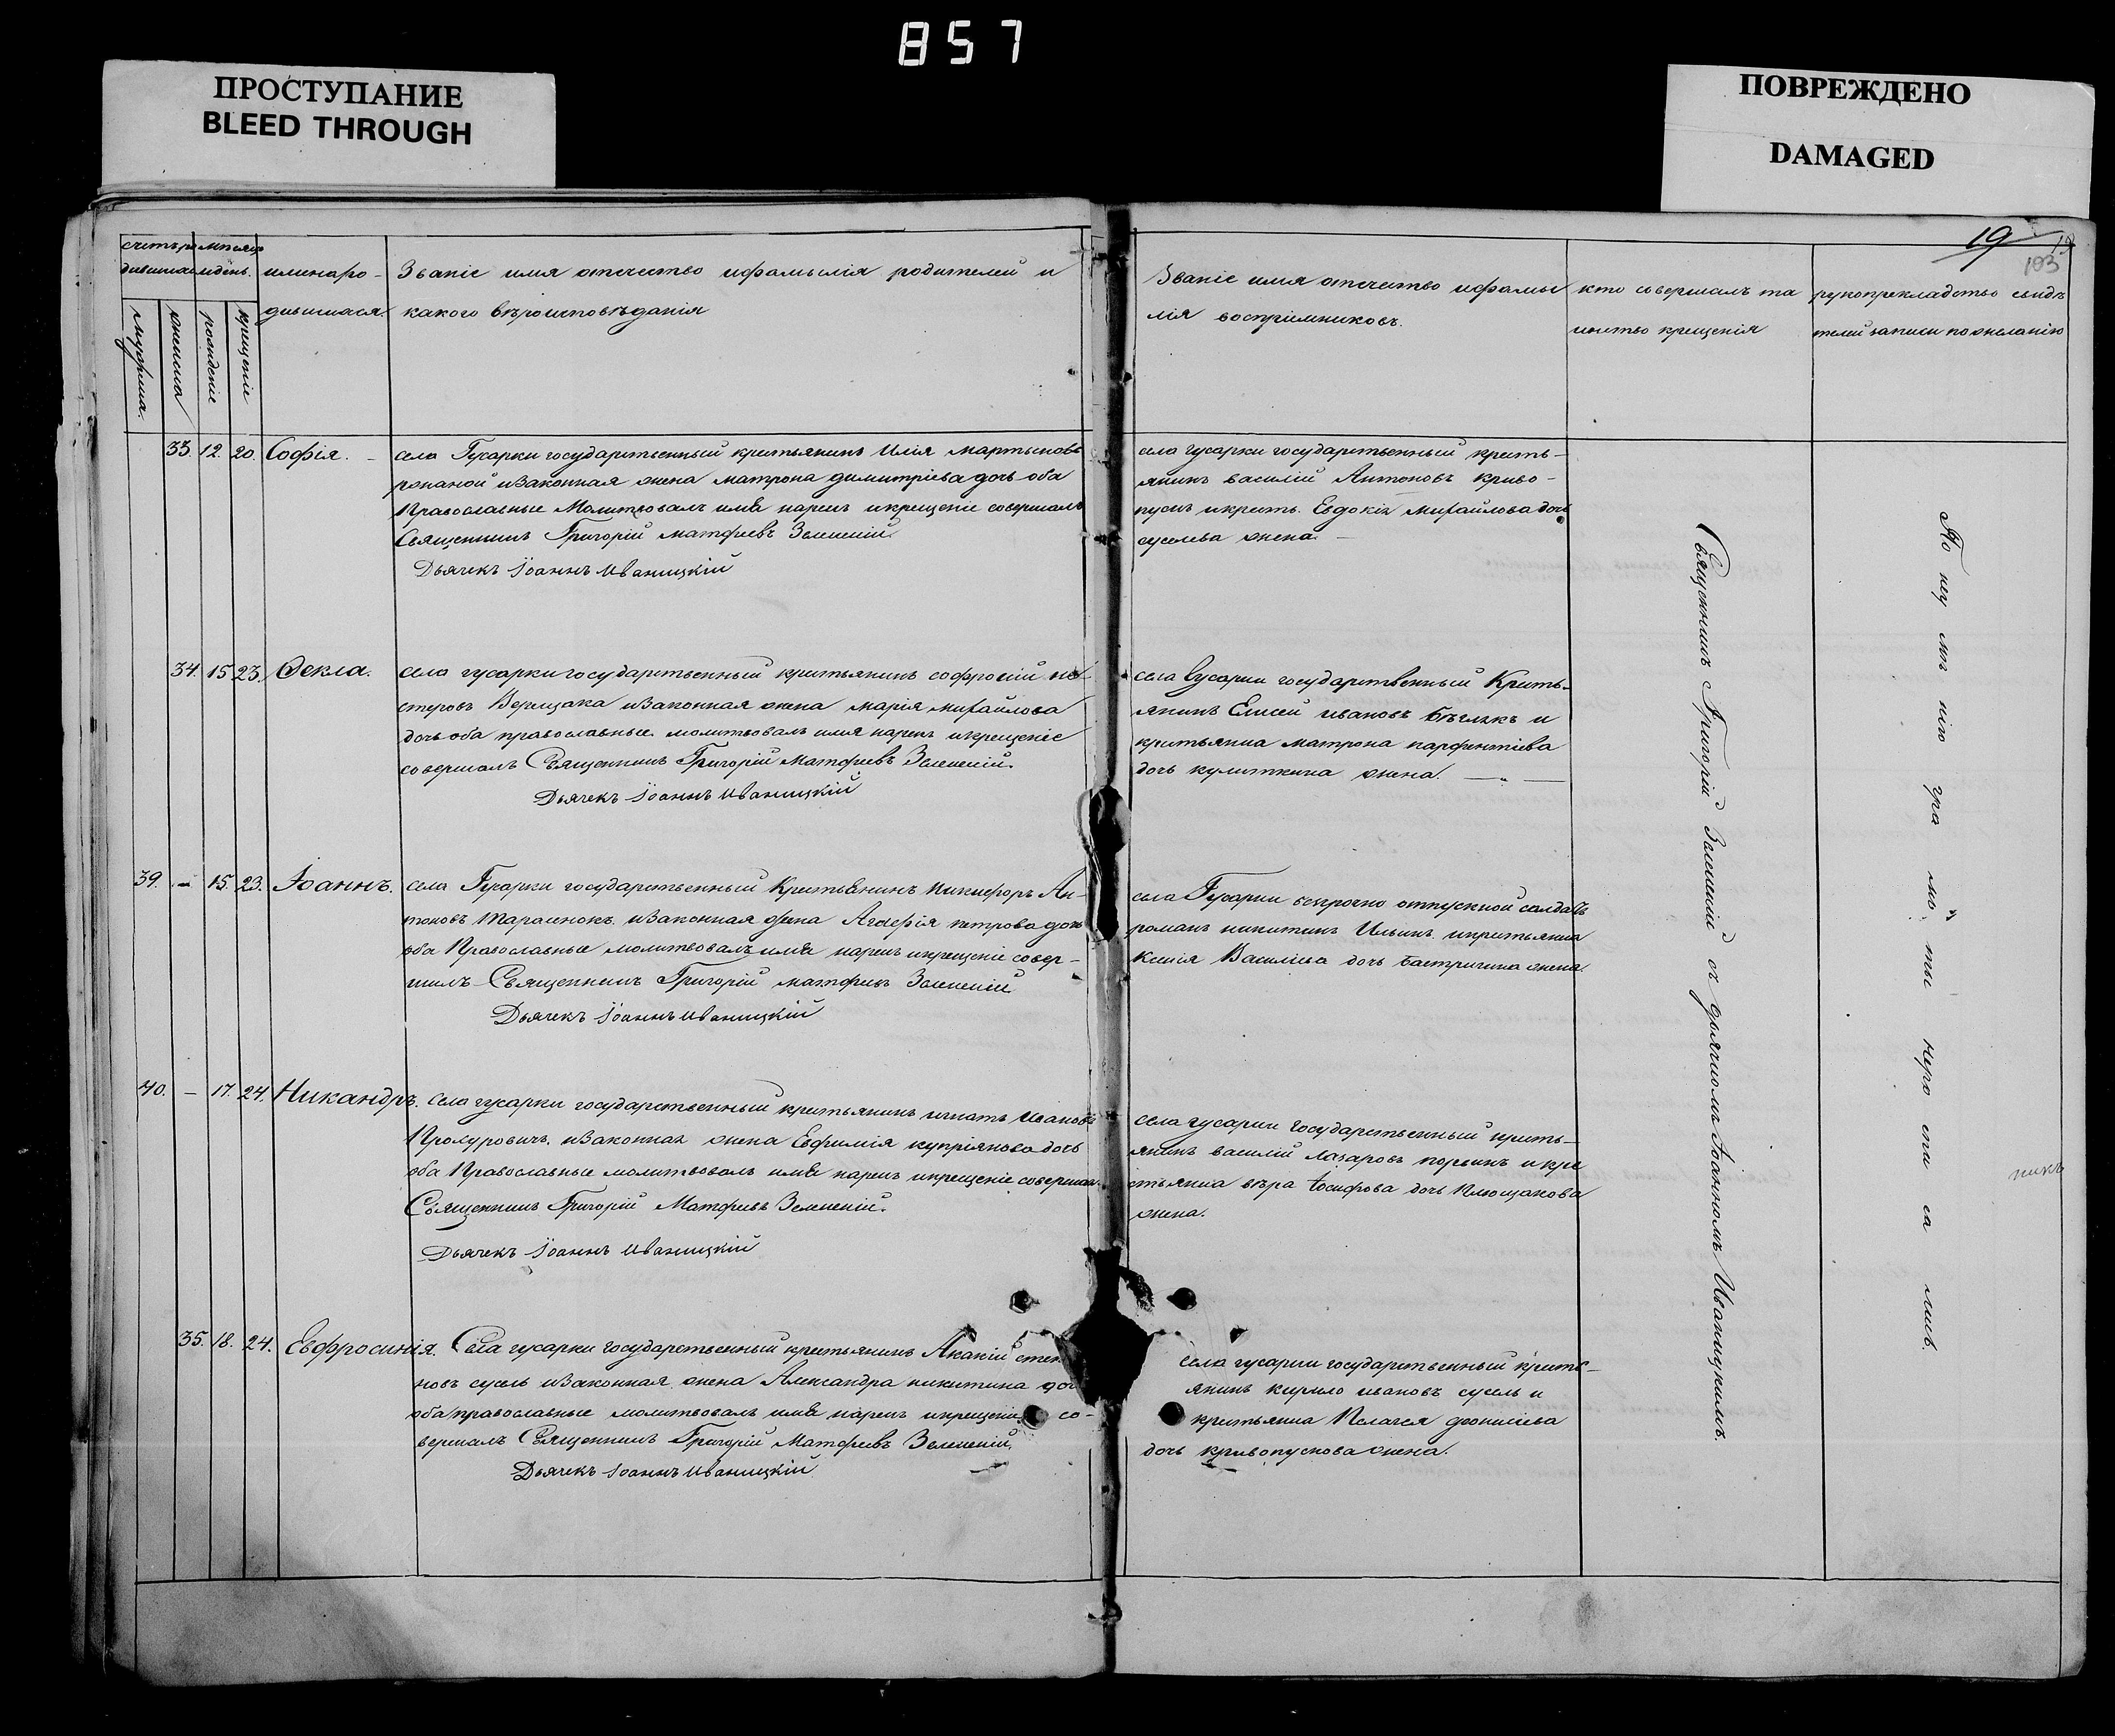 857
ПРОСТУПАНИЕ
BLEED THROUGH
ПОВРЕЖДЕНО
DAMAGED
19
103
имянаро-
дившися.
Званіе имя отечество ифамилія родителей и
какого вѣроисповѣданія
Званіе имя отечество ифамы
лія воспріемниковъ.
кто совершалъ та
инство крещенія
рукоприкладство свидѣ
телей записи пожеланію
рожденіе
крещеніе
33. 12. 20. Софія.
села Гусарки государственный крестьянинъ Илія мартыновъ
изаконная жена матрона димитріева дочь оба
Православные Молитвовалъ имя нареч икрещеніе совершалъ
Священникъ Григорій матфеевъ Зеленскій
Дьячекъ Іоаннъ Иваницкій
села гусарки государственный кресть-
янинъ василій Антоновъ криво-
пускъ икресть. Евдокія михайлова дочь
сусльева жена.
34. 15 23. Ѳекла.
села гусарки государственный крестьянинъ софроній не-
стеровъ Верещака изаконная жена марія михайлова
дочь оба православные. молитвовалъ имя нарекъ икрещеніе
совершалъ Священникъ Григорій Матфеевъ Зеленскій.
Дьячекъ Іоаннъ Иваницкій
села Гусарки государственный Кресть-
янинъ Елисей ивановъ и
крестьянка матрона парфентіева
дочь жена.
39. - 15. 23. Іоаннъ.
села Гусарки государственный Крестьянинъ Никифоръ Ан-
тоновъ Тарасенокъ изаконная жена Агафія петрова дочь
оба Православные молитвовалъ имя нарекъ икрещеніе совер-
шилъ Священникъ Григорій матфеевъ Зеленскій
Дьячекъ Іоаннъ Иваницкій
села Гусарки безсрочно отпускной салдатъ
романъ никитинъ Ильинъ икрестьянка
Ксенія Василіева дочь жена.
40. - 17. 24. Никандръ.
села гусарки государственный крестьянинъ игнатъ Ивановъ
изаконная жена Евфимія купріянова дочь
оба Православные молитвовалъ имя нарекъ икрещеніе совершалъ
Священникъ Григорій Матфеевъ Зеленскій.
Дьячекъ Іоаннъ Иваницкій
села гусарки Государственный кресть-
янинъ василій лазаровъ и кре
стьянка вѣра Іосифова дочь
жена.
35. 18. 24. Евфросинія.
Села гусарки государственный крестьянинъ Акакій степа
новъ сусль изаконная жена Александра никитина доч
оба православные молитвовалъ имя нарекъ икрещеніе со-
вершалъ Священникъ Григорій Матфеевъ Зеленскій.
Дьячекъ Іоаннъ Иваницкій
села гусарки государственный кресть-
янинъ кирило ивановъ сусль и
крестьянка Пелагея
дочь кривопускова жена.
Священникъ Григорій Зеленскій съ дьячкомъ Іоанномъ Иваницкимъ.